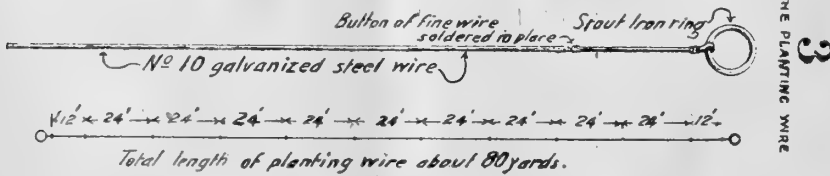 Button of fine wire
soldered in place
Stout Iron ring
Nº 10 galvanized steel wire
12' 24' 24' 24' 24' 24' 24' 24' 24' 24' 12'
Total length of planting wire about 80 yards.
3
HE PLANTING WIRE